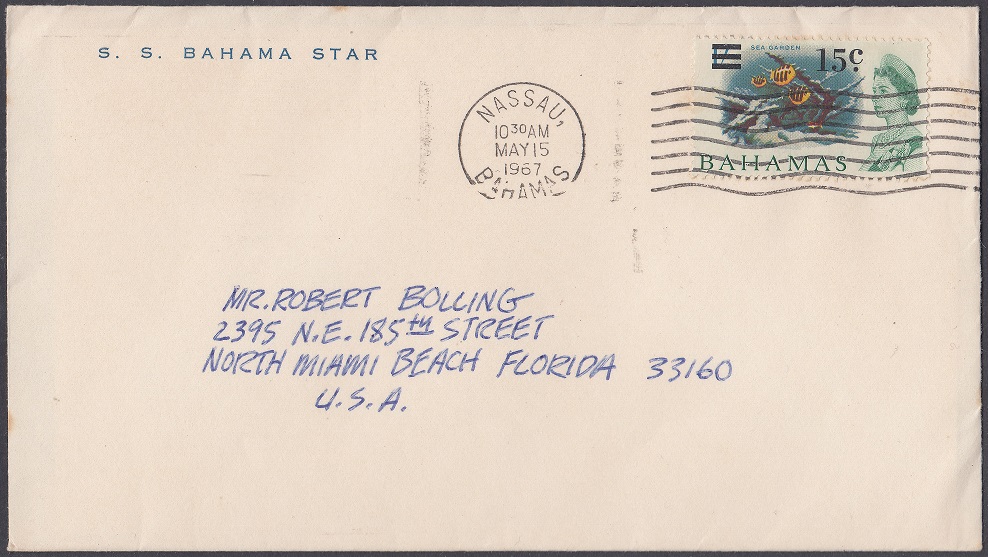 S. S. BAHAMA STAR
SEA GARDEN
15c
BAHAMAS
NASSAU,
10 30 AM
MAY 15
1967
BAHAMAS
MR. ROBERT BOLLING
2395 N.E. 185th STREET
NORTH MIAMI BEACH FLORIDA 33160
U.S.A.